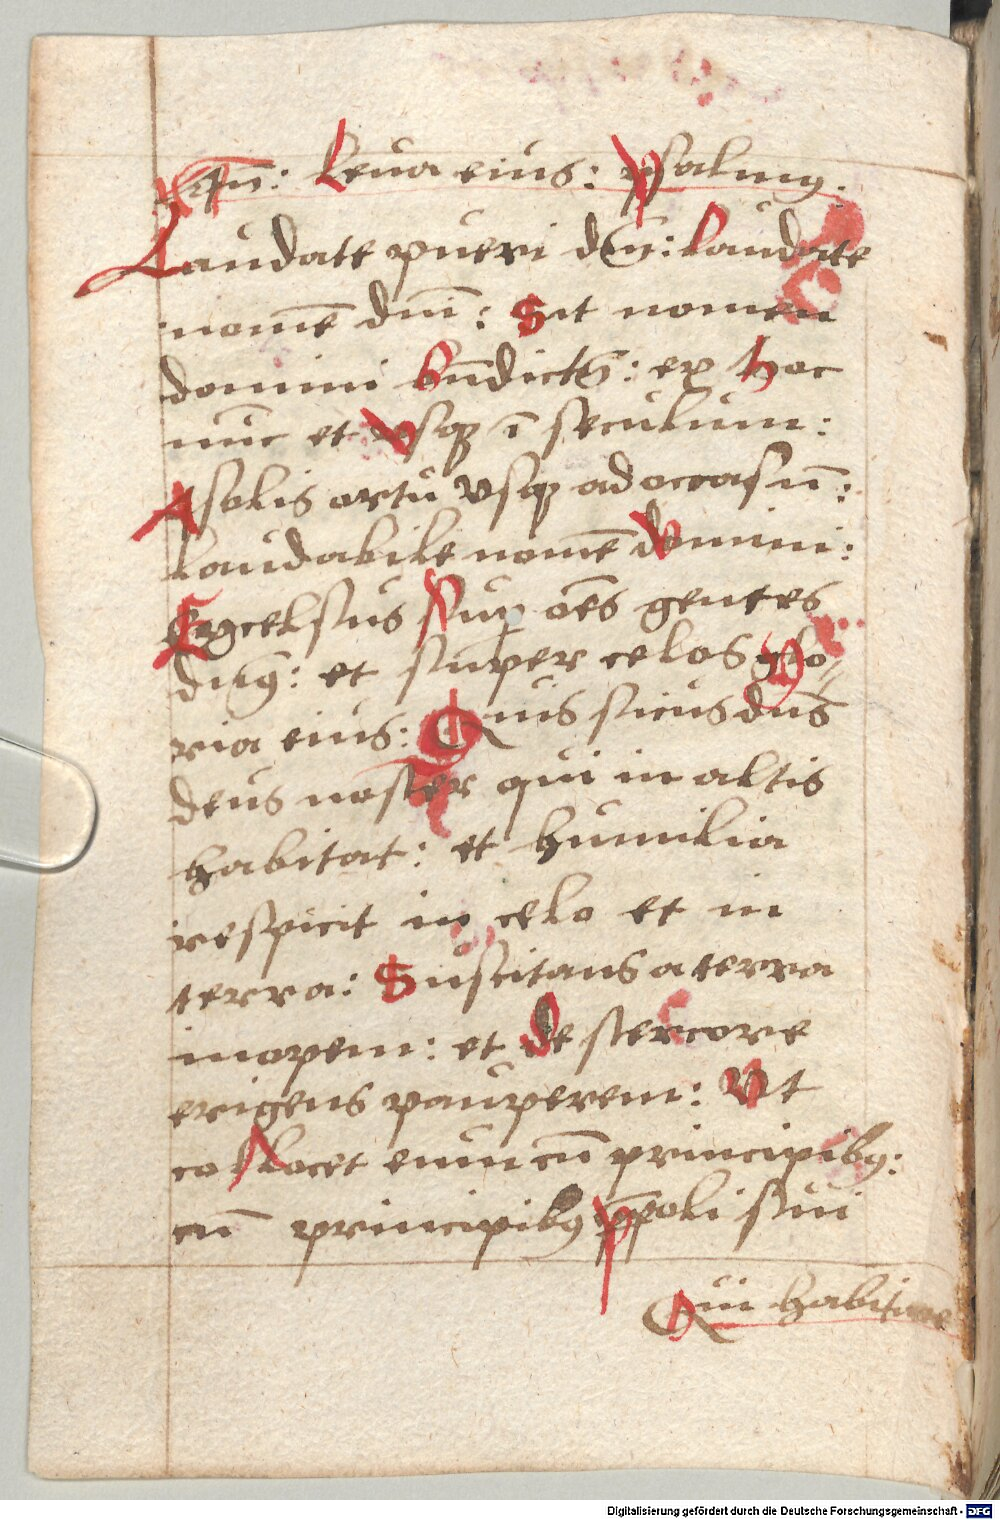 Añ: Leua eius: psalmꝯ.
Laudate pueri dñm: laudate
nomē dnī: Sit nomen
domini bn̄dictū: ex hoc
nūc et vsqꝫ ī seculum:
A solis ortu vsqꝫ ad occasū:
laudabile nomē domini:
Excelsus sup oēs gentes
dn̄s: et super celos glo⸗
ria eius: Quis sicut dn̄s
deus noster qui in altis
habitat: et humilia
respicit in celo et in
terra: Suscitans a terra
inopem: et de stercore
erigens pauperem: Vt
collocet eum cū principibꝯ:
cū principibꝯ pp̄oli sui
Qui habitare
Digitalisierung gefördert durch die Deutsche Forschungsgemeinschaft - DFG